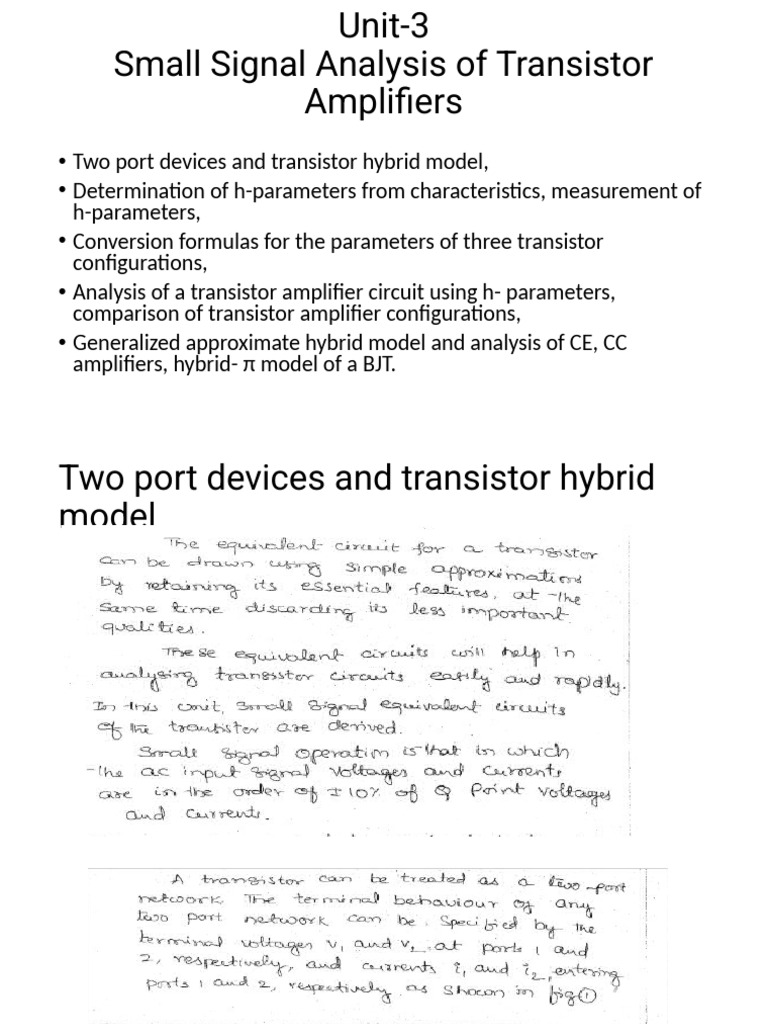 Unit-3
Small Signal Analysis of Transistor
Amplifiers
• Two port devices and transistor hybrid model,
• Determination of h-parameters from characteristics, measurement of
h-parameters,
• Conversion formulas for the parameters of three transistor
configurations,
• Analysis of a transistor amplifier circuit using h- parameters,
comparison of transistor amplifier configurations,
• Generalized approximate hybrid model and analysis of CE, CC
amplifiers, hybrid- π model of a BJT.
Two port devices and transistor hybrid
model
The equivalent circuit for a transistor
can be drawn using simple approximations
by retaining its essential features, at the
same time discarding its less important
qualities.
These equivalent circuits will help in
analysing transistor circuits easily and rapidly.
In this unit, small signal equivalent circuits
of the transistor are derived.
Small signal operation is that in which
the ac input signal voltages and currents
are in the order of ±10% of Q point voltages
and currents.
A transistor can be treated as a two-port
network. The terminal behaviour of any
two port network can be specified by the
terminal voltages v₁ and v₂ at ports 1 and
2, respectively, and currents i₁ and i₂, entering
ports 1 and 2, respectively as shown in fig①